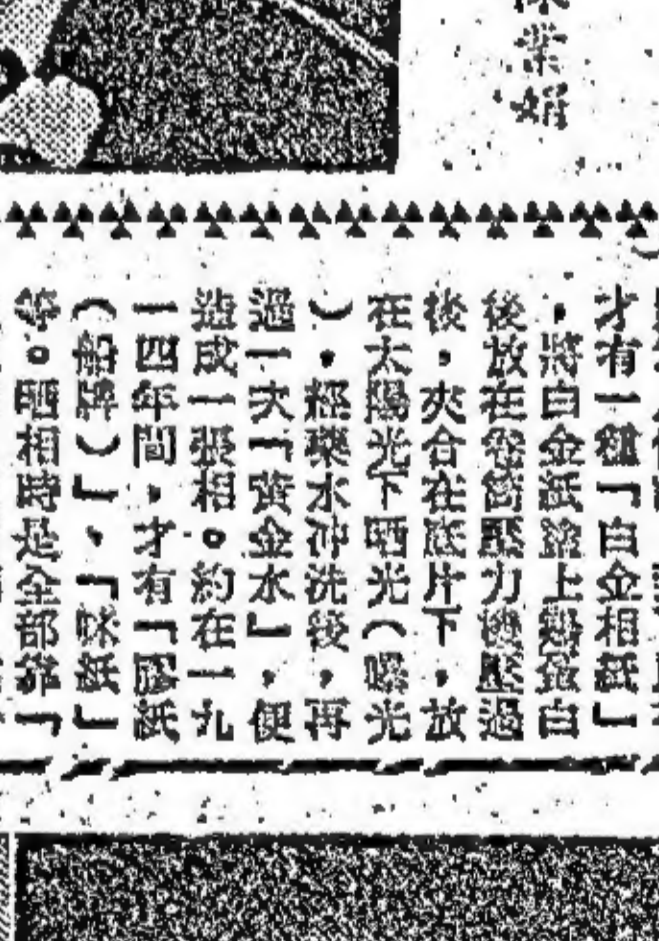 業娟
才有一種「白金相紙」
，將白金紙塗上鷄蛋白
後放在卷筒壓力機壓過
後，夾合在底片下，放
在太陽光下晒光（曝光
），經藥水沖洗後，再
過一次「黃金水」，便
造成一張相。約在一九
一四年間，才有「膠紙
（船牌）」，「咪紙」
等。晒相時是全部靠「